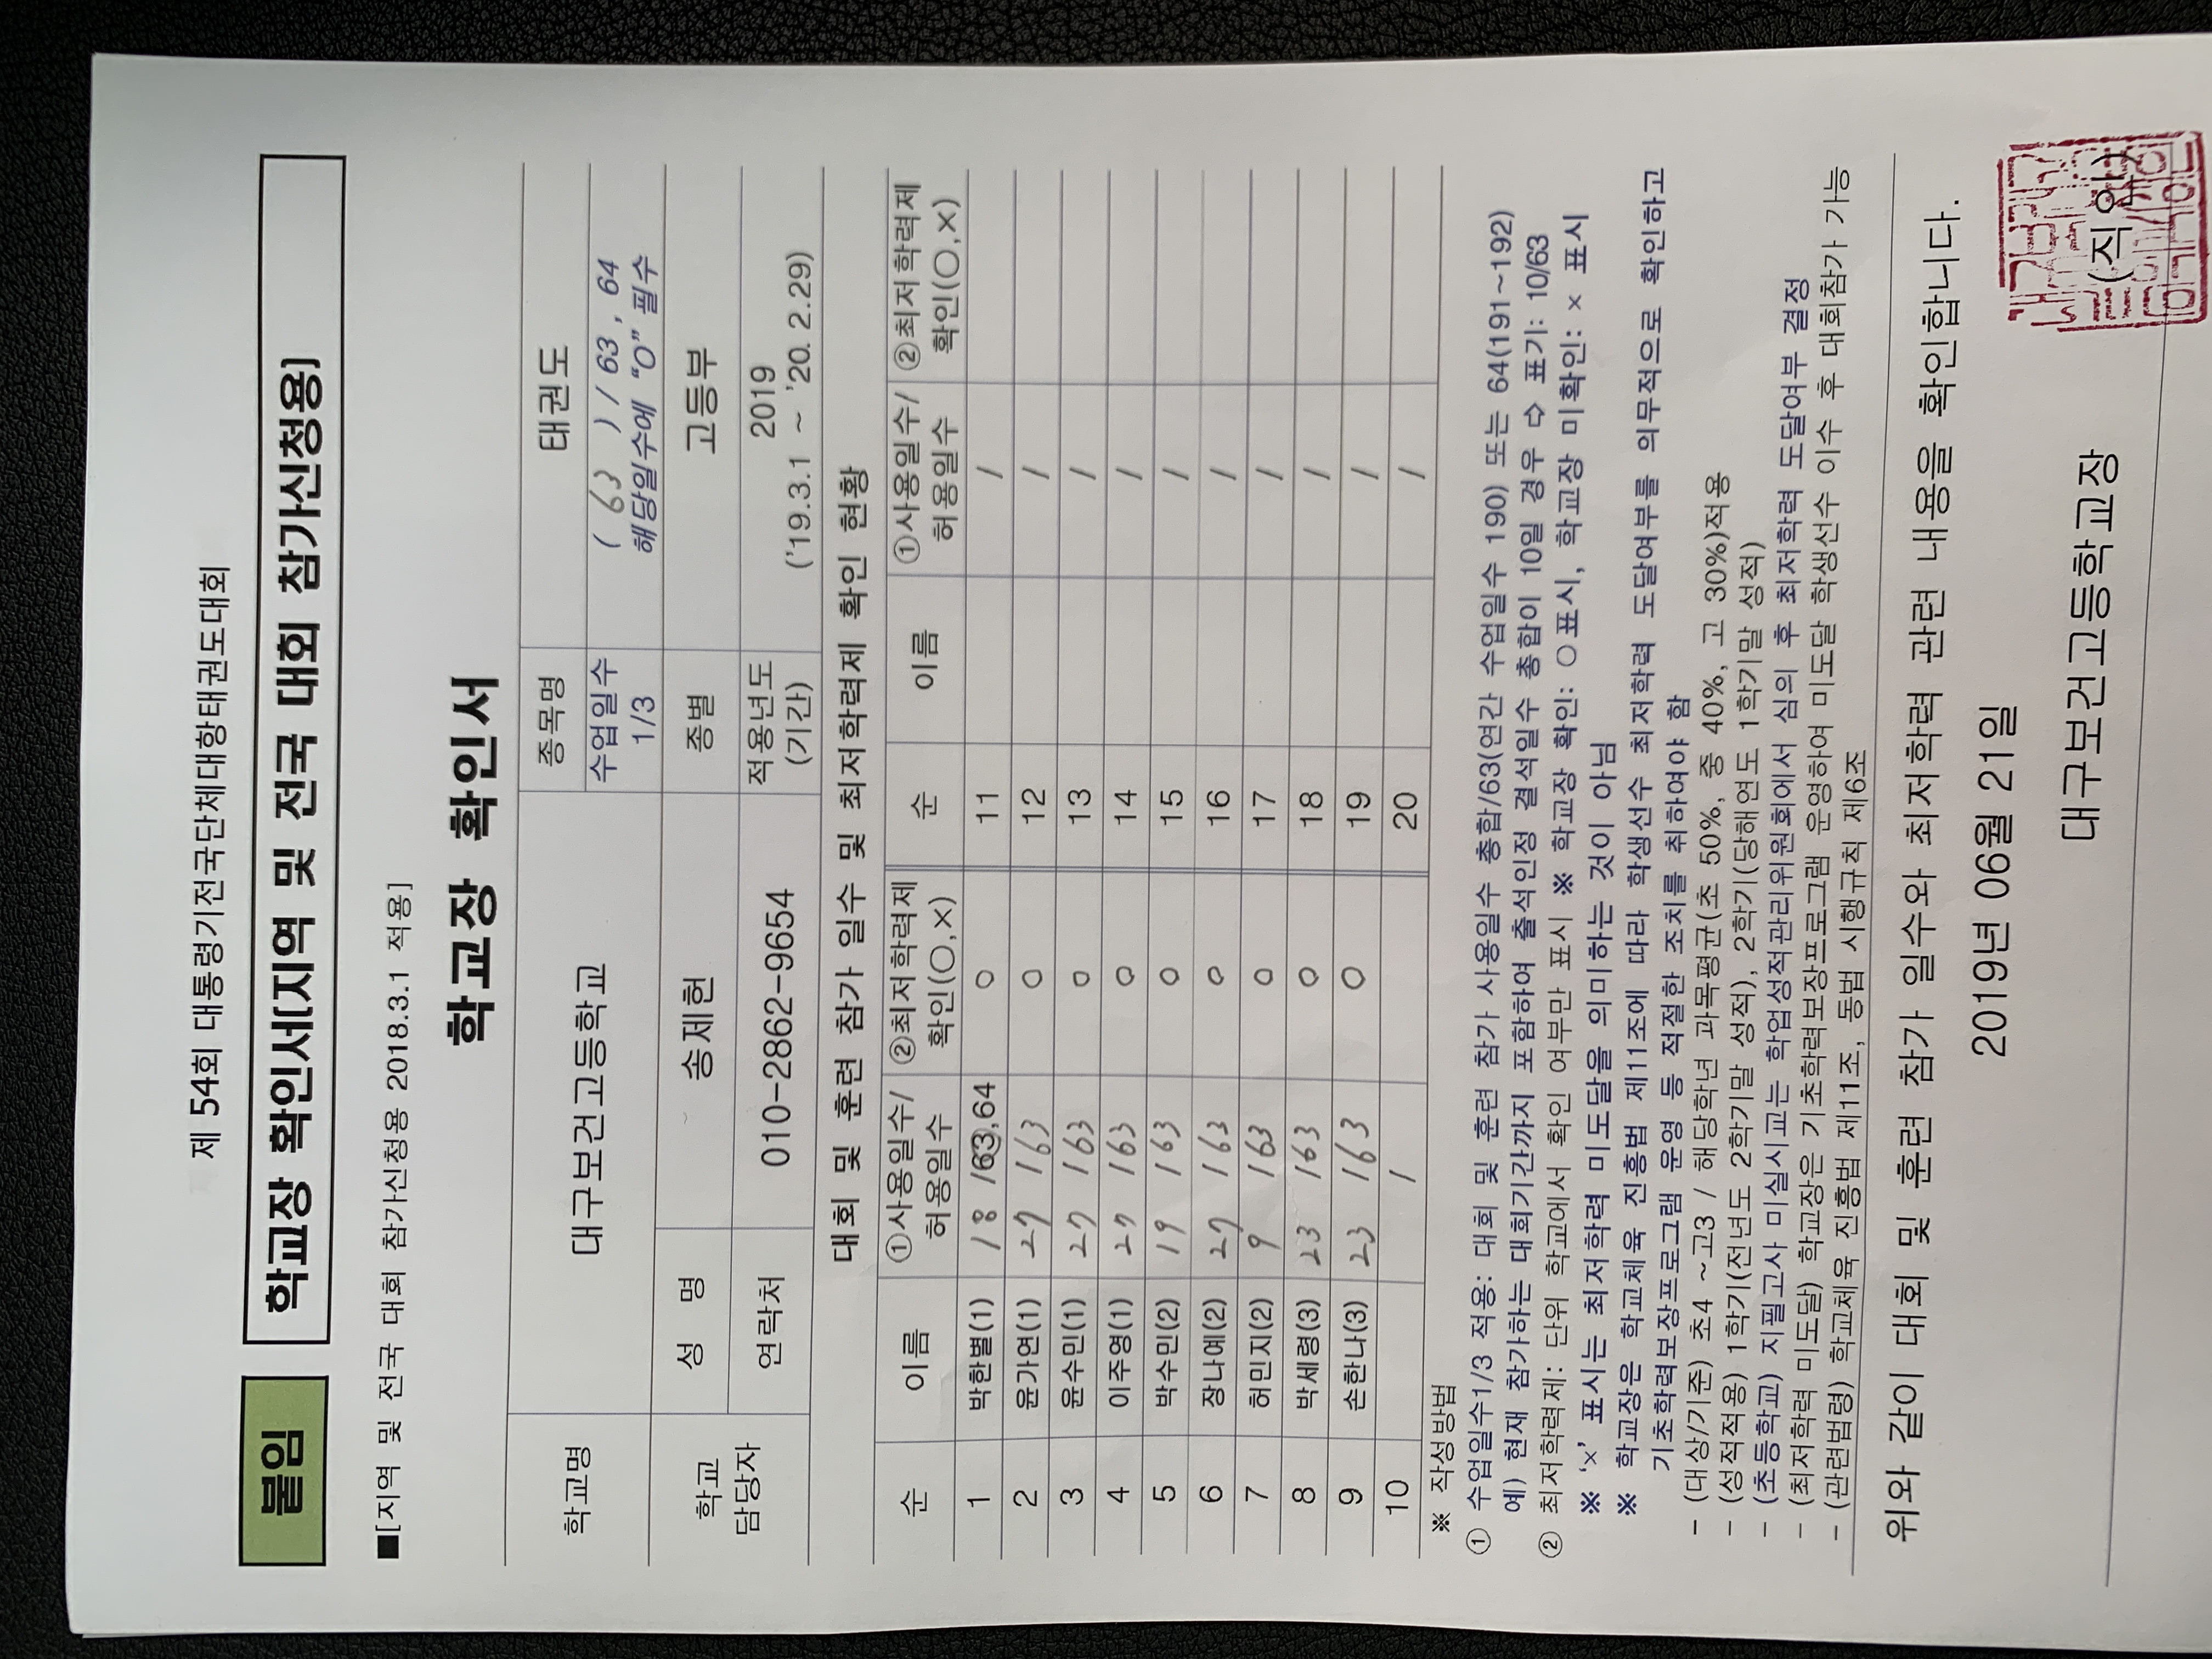 제 54회 대통령기전국단체대항태권도대회
붙임 학교장 확인서[지역 및 전국 대회 참가신청용]
■[지역 및 전국 대회 참가신청용 2018.3.1 적용]
학교장 확인서
학교명 대구보건고등학교 종목명 태권도
수업일수 1/3 ( 63 ) / 63 , 64 해당일수에 "O" 필수
학교 담당자 성 명 송제헌 종별 고등부
연락처 010-2862-9654 적용년도 (기간) 2019 ('19.3.1 ~ '20. 2.29)
대회 및 훈련 참가 일수 및 최저학력제 확인 현황
순 이름 ①사용일수/허용일수 ②최저학력제 확인(○,×) 순 이름 ①사용일수/허용일수 ②최저학력제 확인(○,×)
1 박한별(1) 18 /63,64 ○ 11 /
2 윤가연(1) 27 /63 ○ 12 /
3 윤수민(1) 27 /63 ○ 13 /
4 이주영(1) 27 /63 ○ 14 /
5 박수민(2) 19 /63 ○ 15 /
6 장나예(2) 27 /63 ○ 16 /
7 허민지(2) 9 /63 ○ 17 /
8 박세령(3) 23 /63 ○ 18 /
9 손한나(3) 23 /63 ○ 19 /
10 / 20 /
※ 작성방법
① 수업일수1/3 적용: 대회 및 훈련 참가 사용일수 총합/63(연간 수업일수 190) 또는 64(191~192)
예) 현재 참가하는 대회기간까지 포함하여 출석인정 결석일수 총합이 10일 경우 ⇨ 표기: 10/63
② 최저학력제: 단위 학교에서 확인 여부만 표시 ※ 학교장 확인: ○표시, 학교장 미확인: × 표시
※ '×' 표시는 최저학력 미도달을 의미하는 것이 아님
※ 학교장은 학교체육 진흥법 제11조에 따라 학생선수 최저학력 도달여부를 의무적으로 확인하고
기초학력보장프로그램 운영 등 적절한 조치를 취하여야 함
- (대상/기준) 초4 ~고3 / 해당학년 과목평균(초 50%, 중 40%, 고 30%)적용
- (성적적용) 1학기(전년도 2학기말 성적), 2학기(당해연도 1학기말 성적)
- (초등학교) 지필고사 미실시교는 학업성적관리위원회에서 심의 후 최저학력 도달여부 결정
- (최저학력 미도달) 학교장은 기초학력보장프로그램 운영하여 미도달 학생선수 이수 후 대회참가 가능
- (관련법령) 학교체육 진흥법 제11조, 동법 시행규칙 제6조
위와 같이 대회 및 훈련 참가 일수와 최저학력 관련 내용을 확인합니다.
2019년 06월 21일
대구보건고등학교장 (직인)